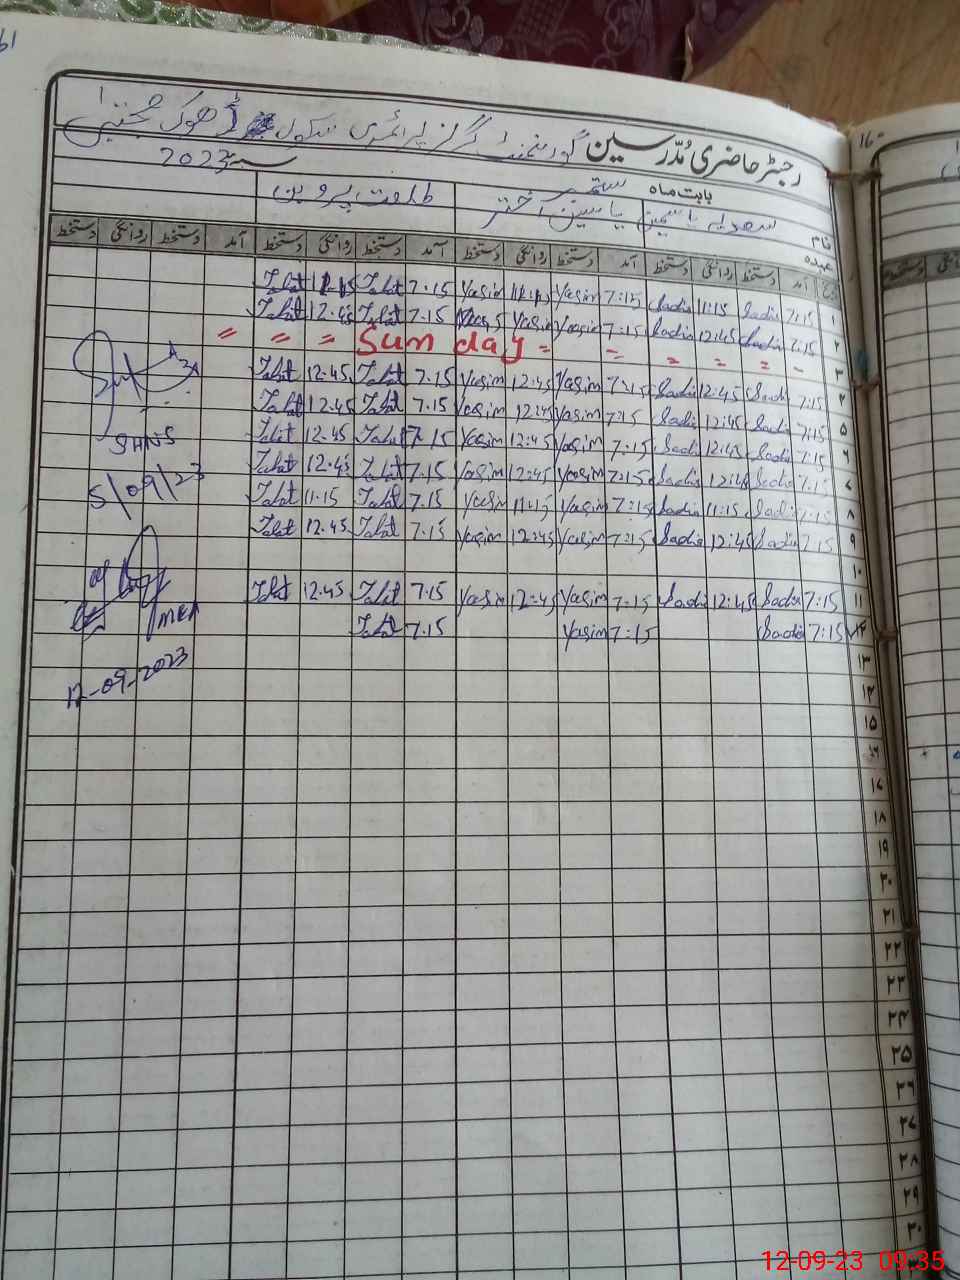 رجسٹر حاضری مدرسین گورنمنٹ گرلز پرائمری سکول ڈھوک مجتبیٰ
بابت ماہ ستمبر سنہ 2023
نام سعدیہ یاسمین یاسین اختر طلعت پروین
عہدہ
تاریخ آمد دستخط روانگی دستخط آمد دستخط روانگی دستخط آمد دستخط روانگی دستخط آمد دستخط روانگی دستخط
۱ 7:15 Sadia 11:15 Sadia 7:15 Yasim Yasim 7.15 Talat Talat
۲ 7:15 Sadia 12:45 Sadia 7:15 Yasim Yasim 7.15 Talat 12.45 Talat
۳ - = = = = = Sunday = = =
۴ 7:15 Sadia 12:45 Sadia 7:15 Yasim 12:45 Yasim 7.15 Talat 12.45 Talat
۵ 7:15 Sadia 12:45 Sadia 7:15 Yasim 12:45 Yasim 7.15 Talat 12.45 Talat
۶ 7:15 Sadia 12:45 Sadia 7:15 Yasim 12:45 Yasim 7.15 Talat 12.45 Talat
۷ 7:15 Sadia 12:45 Sadia 7:15 Yasim 12:45 Yasim 7.15 Talat 12.45 Talat
۸ 7:15 Sadia 11:15 Sadia 7:15 Yasim 11:15 Yasim 7.15 Talat 11.15 Talat
۹ 7:15 Sadia 12:45 Sadia 7:15 Yasim 12:45 Yasim 7.15 Talat 12.45 Talat
۱۰
۱۱ 7:15 Sadia 12:45 Sadia 7:15 Yasim 12:45 Yasim 7.15 Talat 12.45 Talat
۱۲ 7:15 Sadia 7:15 Yasim 7.15 Talat
5/09/23
MEA
12-09-2023
۱۳
۱۴
۱۵
۱۶
۱۷
۱۸
۱۹
۲۰
۲۱
۲۲
۲۳
۲۴
۲۵
۲۶
۲۷
۲۸
۲۹
۳۰
12-09-23 09:35